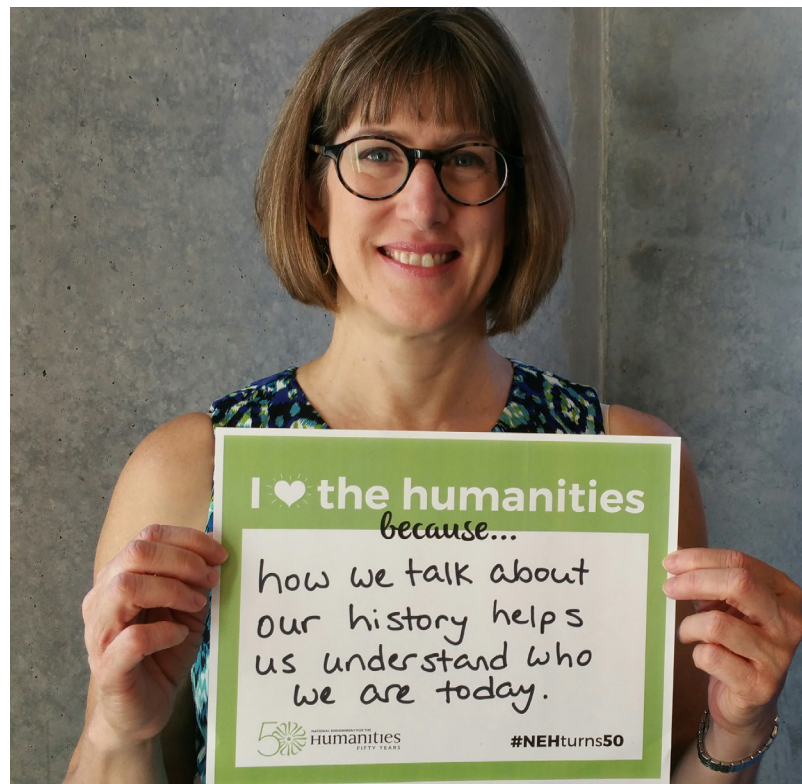 I ♥ the humanities
because...
how we talk about
our history helps
us understand who
we are today.
50
NATIONAL ENDOWMENT FOR THE
Humanities
FIFTY YEARS
#NEHturns50